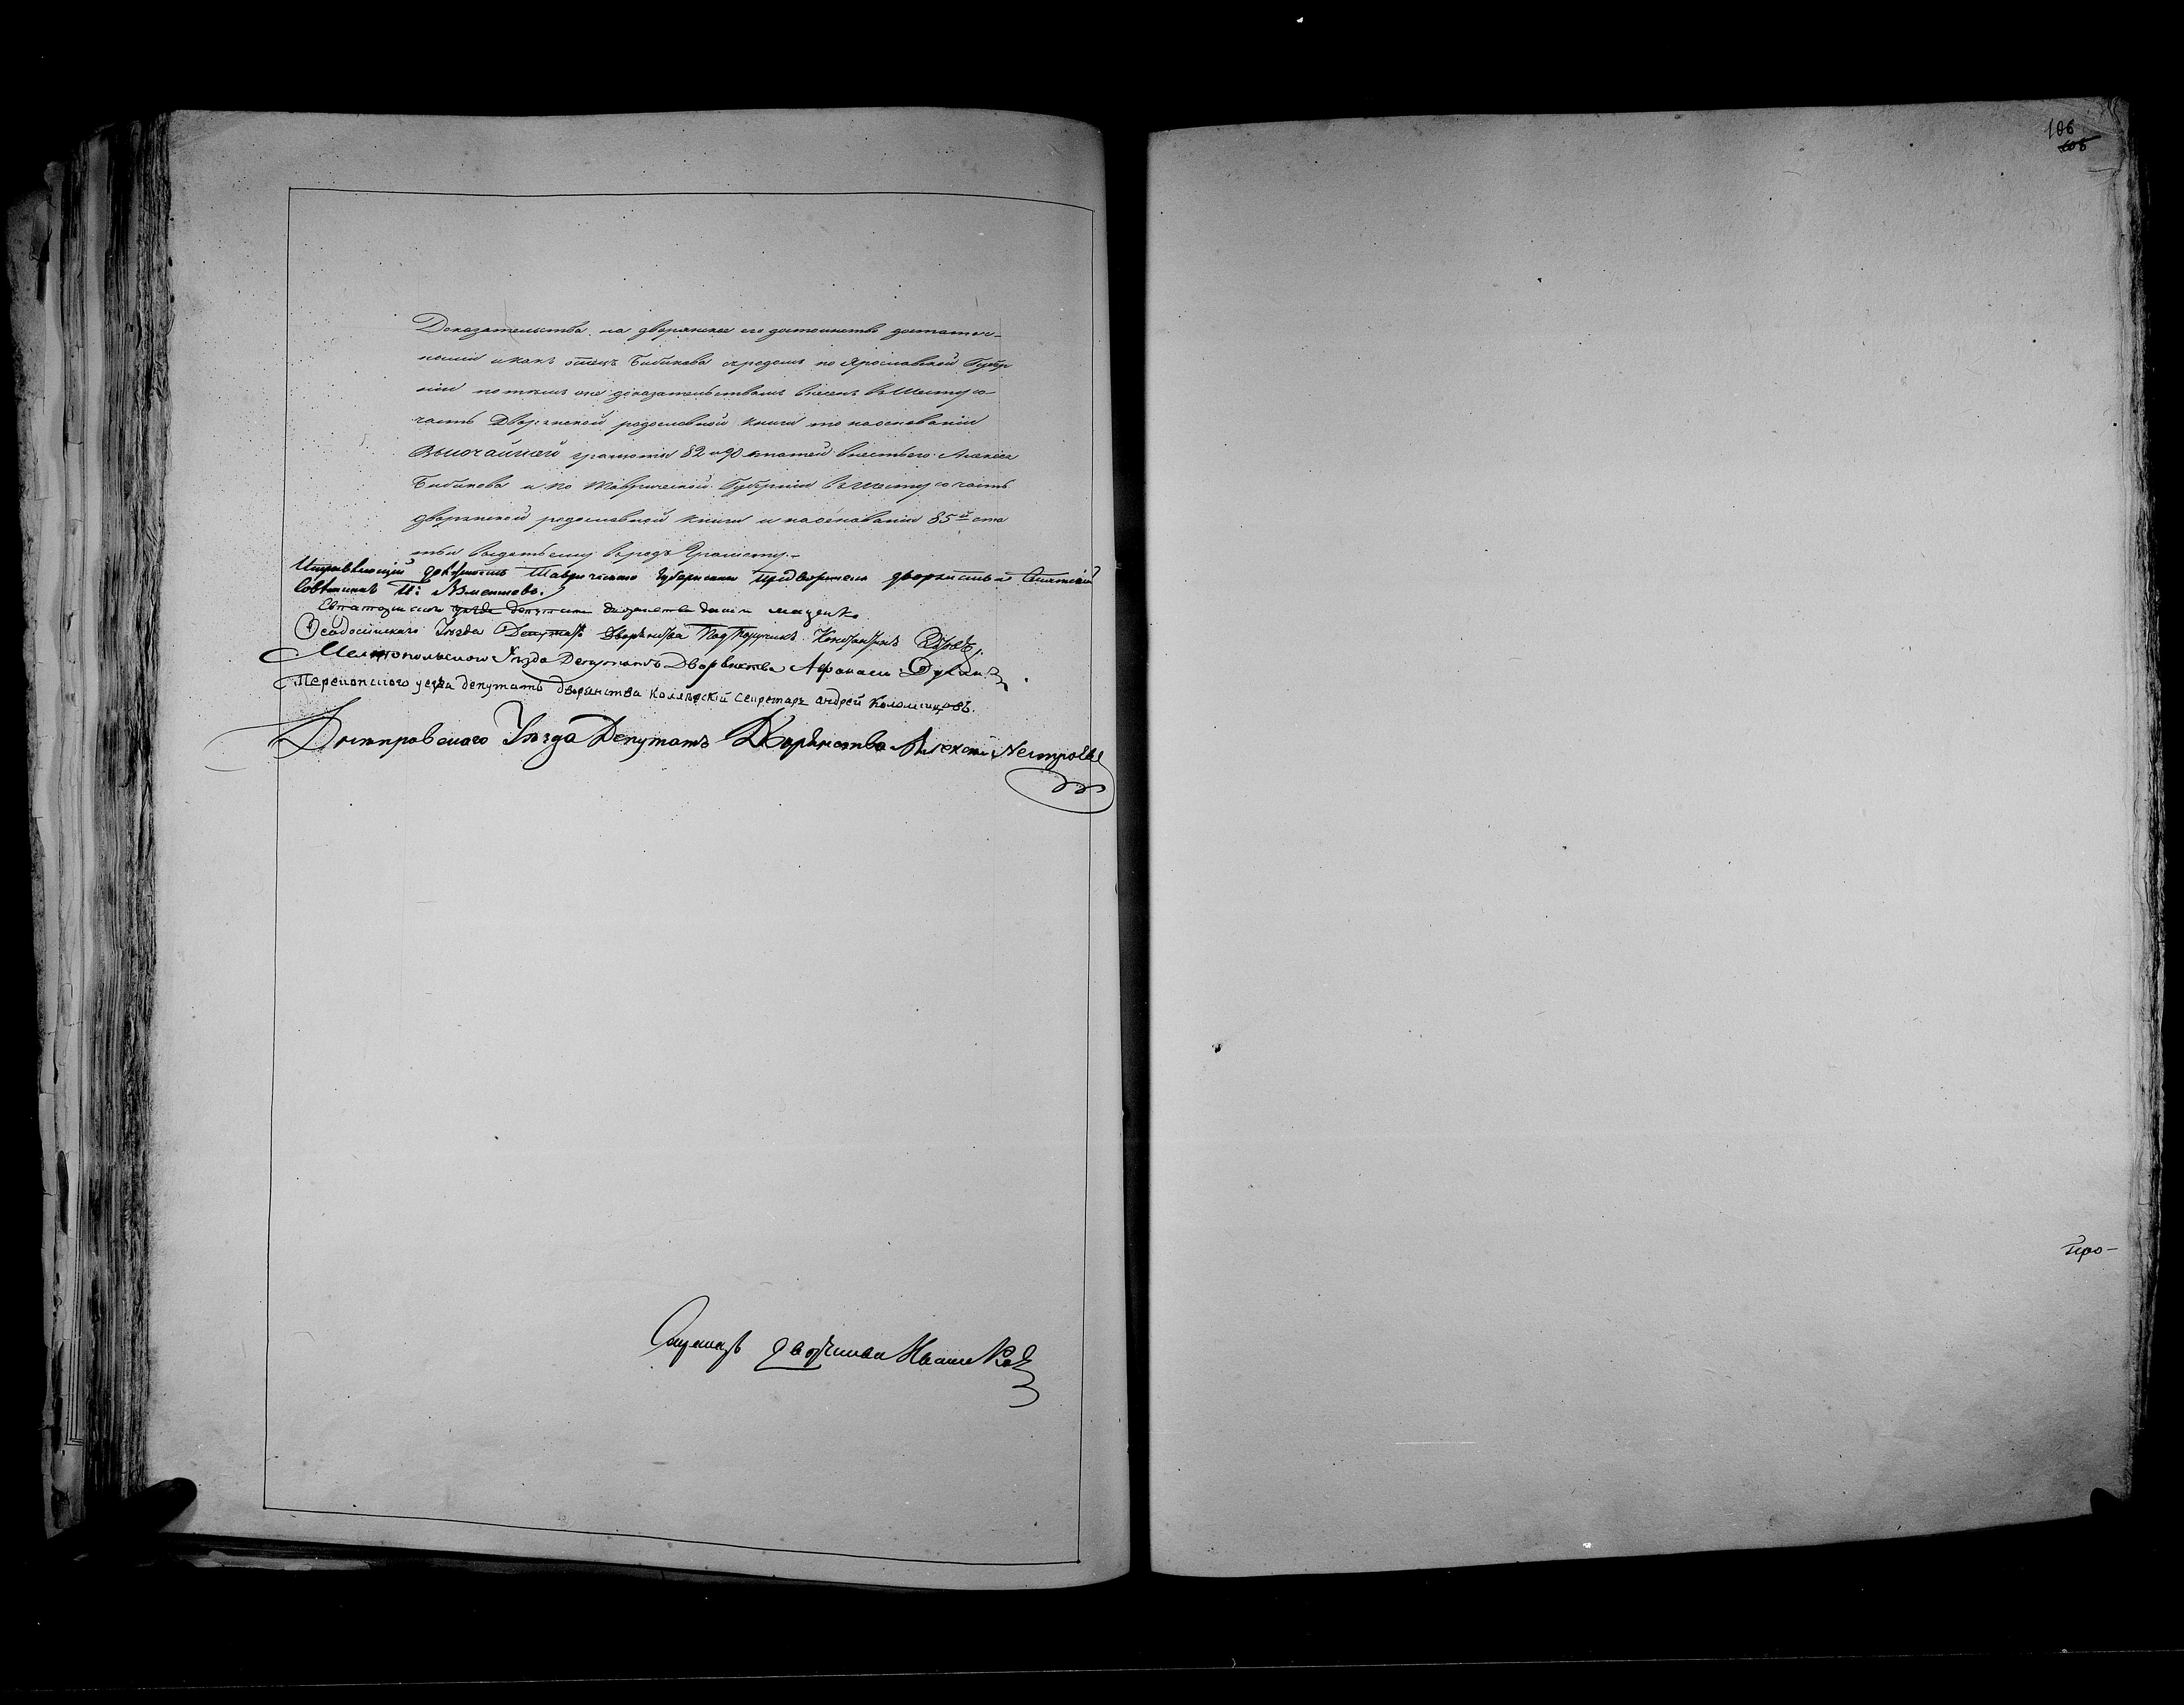 Доказательства на дворянское его достоинство достаточ-
ными и какъ отецъ Бибикова сродомъ по Ярославской Губер
нии по тѣмъ же доказательствамъ внесенъ въ Шестую
часть Дворянской родословной книги то наосновании
Высочайшей грамоты 82 и 90 статей внесть его Алексея
Бибикова и по Таврической Губернии въ Шестую часть
дворянской родословной книги и наосновании 85й ста
тьи выдать ему въ родъ Грамоту.-
Исправляющий должность Таврического Губернского предводителя дворянства Статский
Совѣтникъ
Евпаторийский уезда депутатъ дворянства
Феодосийскаго Уѣзда Депутатъ Дворянства Подпоручикъ Константинъ
Мелитопольского Уѣзда Депутатъ Дворянства Афанасий
Перекопского уезда депутатъ дворянства колежский секретарь андрей коломийцовъ.
Днепровскаго Уѣзда Депутатъ Дворянства Алексей
Секретарь дворянства
106
105
Про-